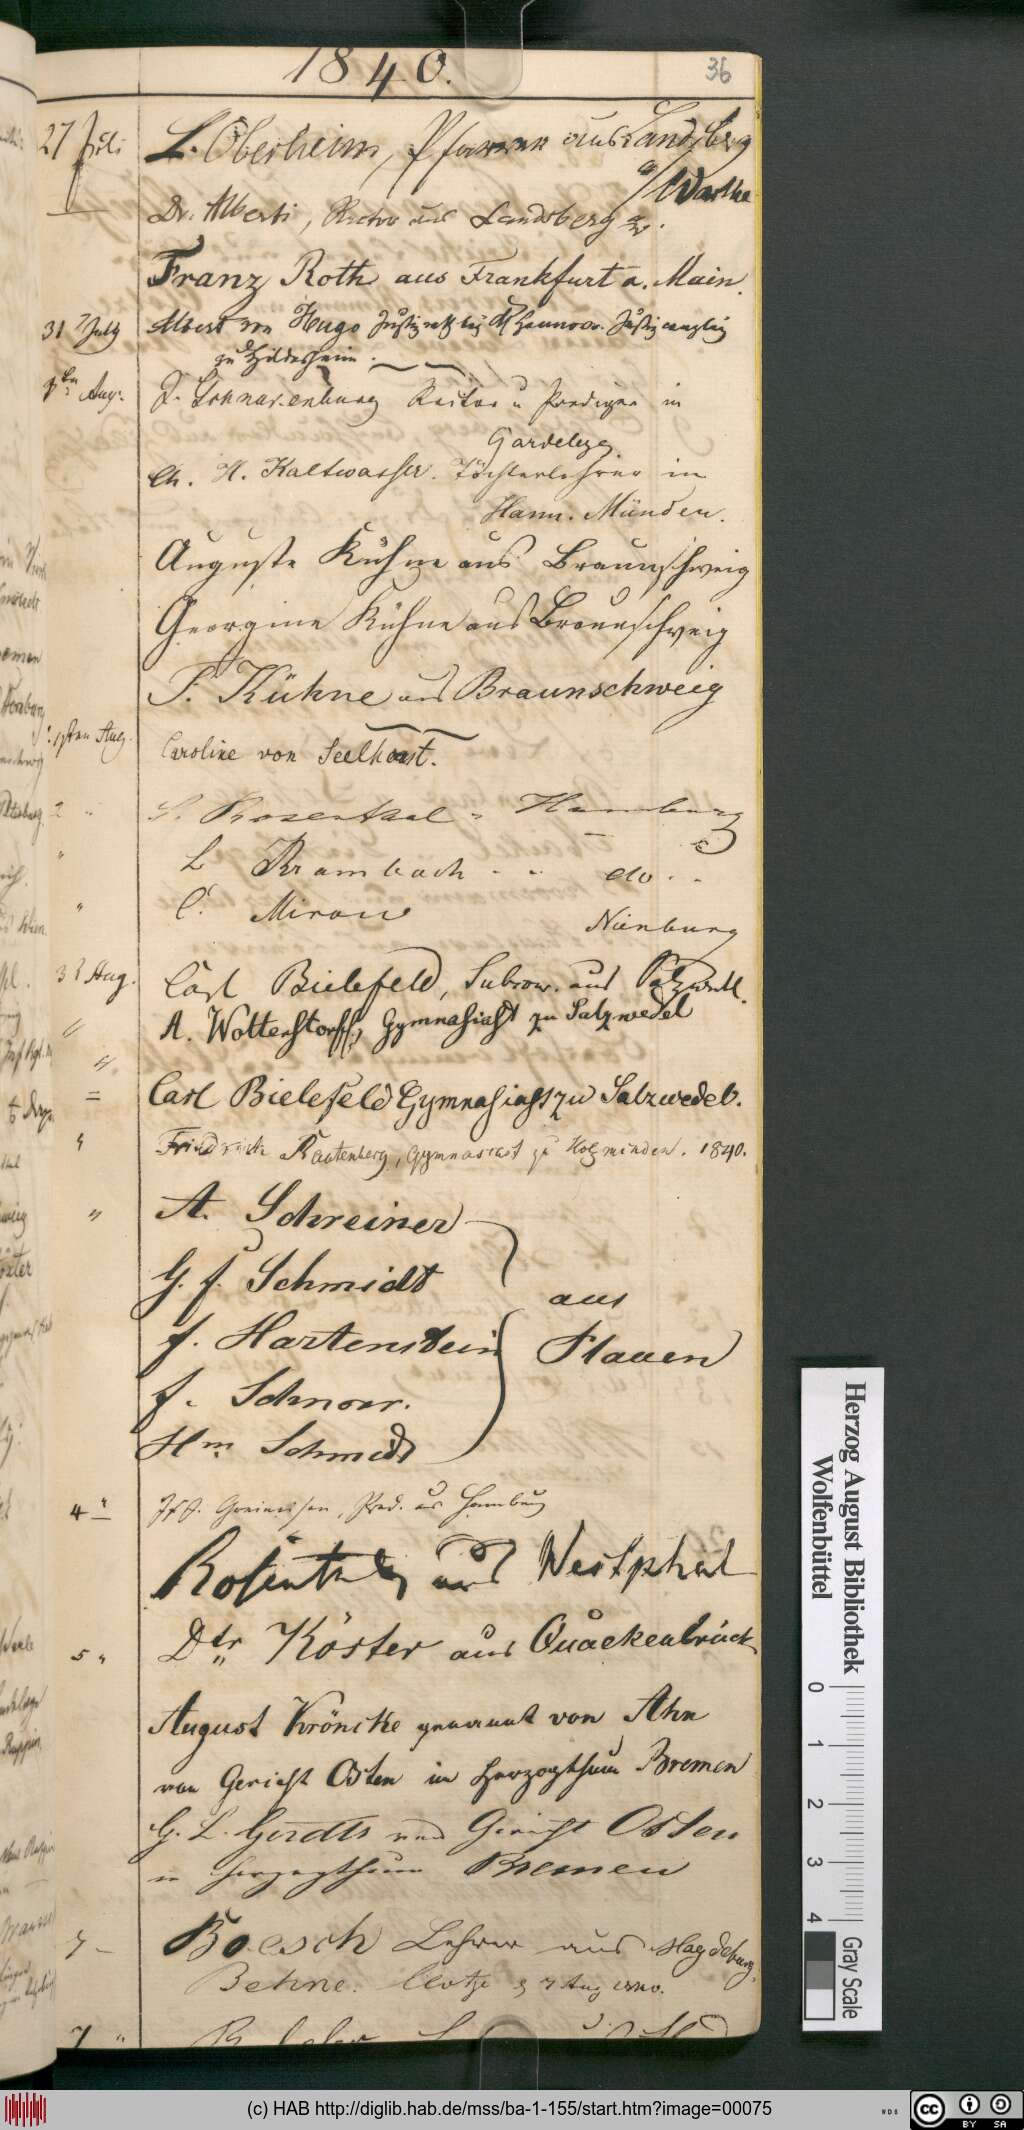 1840.
36
27 Juli L. Oberheim, Pfarrer aus Landsberg
a/ Warthe
Dr. Alberti, Rector aus Landsberg a/w.
Franz Roth aus Frankfurt a. Main.
31 July Albert von Hugo Hannover. Justizcanzley
zu Hildesheim.
Aug. Rector u Prediger in
Gardelegen
Ch. H. Kaltwasser. Töchterlehrer in
Hann. Münden.
Auguste Kühne aus Braunschweig
Georgine Kühne aus Braunschweig
F. Kühne aus Braunschweig
1sten Aug. Caroline von Seelhorst.
2 " S. Rosenthal " Hamburg
" L Krambach - " do "
" C. Mirow Nienburg
3 t Aug. Carl Bielefeld, Subrow. aus Salzwedl.
" A. Wolterstorff, Gymnasiast zu Salzwedel
= Carl Bielefeld Gymnasiast zu Salzwedel.
" Friedrich Rautenberg, Gymnasiast zu Holzminden. 1840.
" A. Schreiner
G. f. Schmidt
aus
f. Hartenstein Plauen
f. Schnorr.
Hm Schmidt
4 " Pred. aus Hamburg
Rosenthal aus Westphal
5 " Dtr Köster aus Quackenbrück
August Kröncke genannt von Ahn
von Gericht Osten im Herzogthum Bremen
G. L. Gerdts von Gericht Osten
in Herzogthum Bremen
7 - Boesch Lehrer aus Magdeburg.
Behne. Clötze d 7 Aug 1840.
7 "
Herzog August Bibliothek
Wolfenbüttel
0 1 2 3 4
Gray Scale
(c) HAB http://diglib.hab.de/mss/ba-1-155/start.htm?image=00075
WDB
cc BY SA